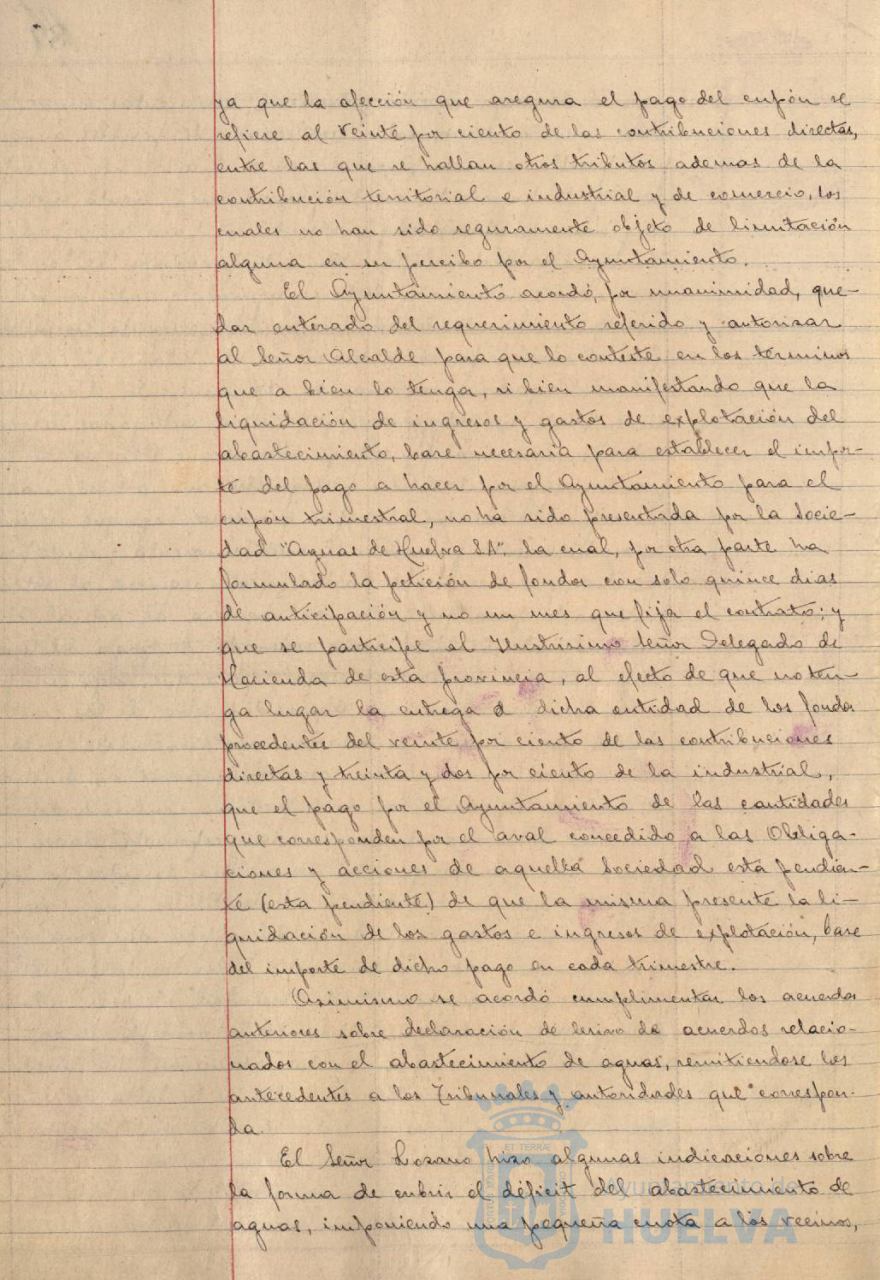 ya que la afección que asegura el pago del cupón se
refiere al veinte por ciento de las contribuciones directas,
entre las que se hallan otros tributos ademas de la
contribución territorial e industrial y de comercio, los
cuales no han sido seguramente objeto de limitación
alguna en su percibo por el Ayuntamiento.
El Ayuntamiento acordó, por unanimidad, que-
dar enterado del requerimiento referido y autorizar
al Señor Alcalde para que lo conteste en los términos
que a bien lo tenga, si bien manifestando que la
liquidación de ingresos y gastos de explotación del
abastecimiento, base necesaria para establecer el impor-
te del pago a hacer por el Ayuntamiento para el
cupón trimestral, no ha sido presentada por la Socie-
dad "Aguas de Huelva S.A". la cual, por otra parte ha
formulado la petición de fondos con solo quince dias
de anticipación y no un mes que fija el contrato; y
que se participe al Ilustrísimo Señor Delegado de
Hacienda de esta provincia, al efecto de que no ten-
ga lugar la entrega a dicha entidad de los fondos
procedentes del veinte por ciento de las contribuciones
directas y treinta y dos por ciento de la industrial,
que el pago por el Ayuntamiento de las cantidades
que corresponden por el aval concedido a las Obliga-
ciones y acciones de aquella Sociedad esta pendian-
te (esta pendiente) de que la misma presente la li-
quidación de los gastos e ingresos de explotación, base
del importe de dicho pago en cada trimestre.
Asimismo se acordó cumplimentar los acuerdos
anteriores sobre declaración de lesivo de acuerdos relacio-
nados con el abastecimiento de aguas, remitiendose los
antecedentes a los Tribunales y autoridades que correspon-
da.
El Señor Lozano hizo algunas indicaciones sobre
la forma de cubrir el déficit del abastecimiento de
aguas, imponiendo una pequeña cuota a los vecinos,
Ayuntamiento de
HUELVA